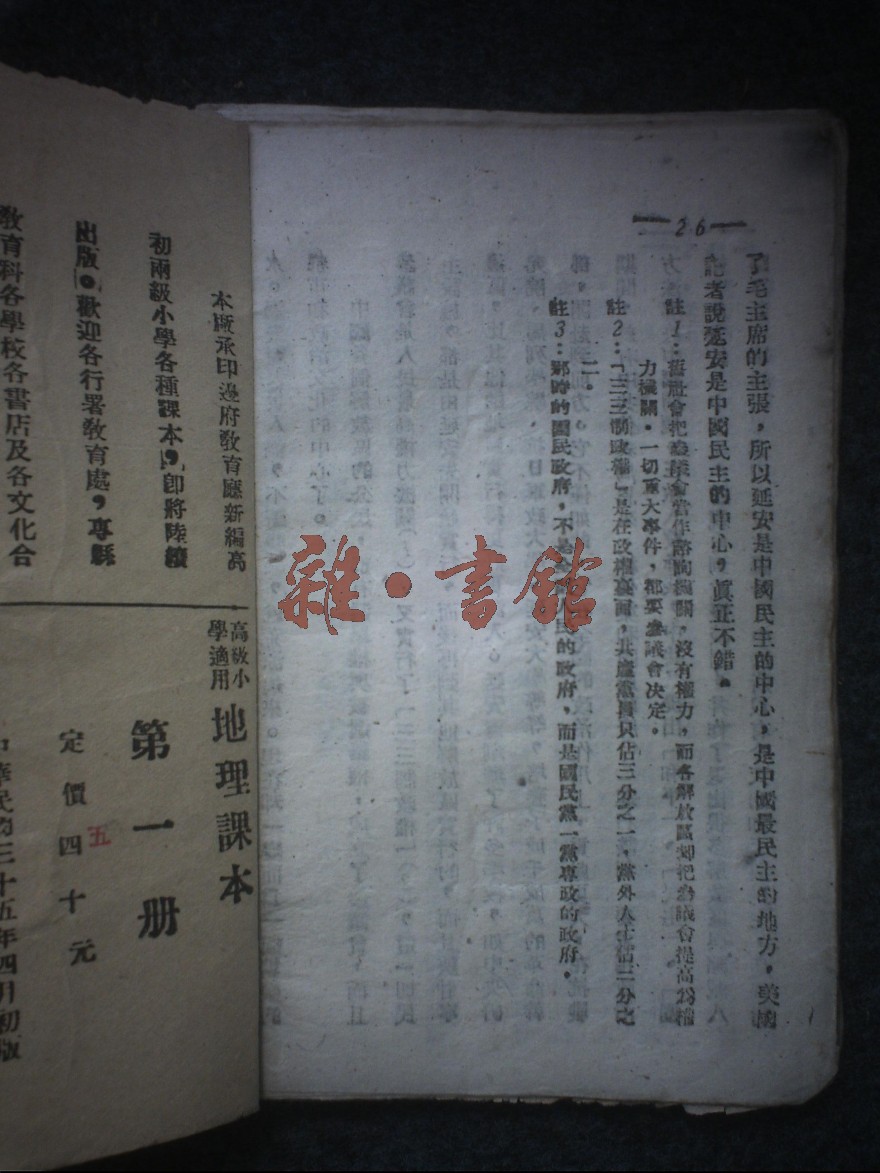 —26—
了毛主席的主張，所以延安是中國民主的中心，是中國最民主的地方，美國
記者說延安是中國民主的中心，眞正不錯。
註1：舊社會把參議會當作諮詢機關，沒有權力，而各解放區却把參議會提高爲權
力機關。一切重大事件，都要參議會决定。
註2：「三三制政權」是在政權裏面，共產黨員只佔三分之一，黨外人士佔三分之
二。
註3：那時的國民政府，不是全國人民的政府，而是國民黨一黨專政的政府。
雜·書館
本廠承印邊府敎育廳新編高
初兩級小學各種課本，卽將陸續
出版。歡迎各行署敎育處，專縣
敎育科各學校各書店及各文化合
高級小
學適用
地理課本
第一册
定價四十元
五
中華民國三十五年四月初版